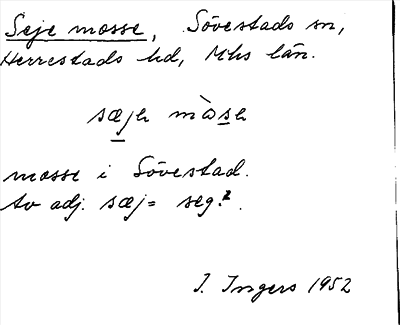 Seje mosse, Sövestads sn,
Herrestads hd, Mhs län.
sæjə màsə
mosse i Sövestad.
Av adj. sæj = seg.?.
I. Ingers 1952